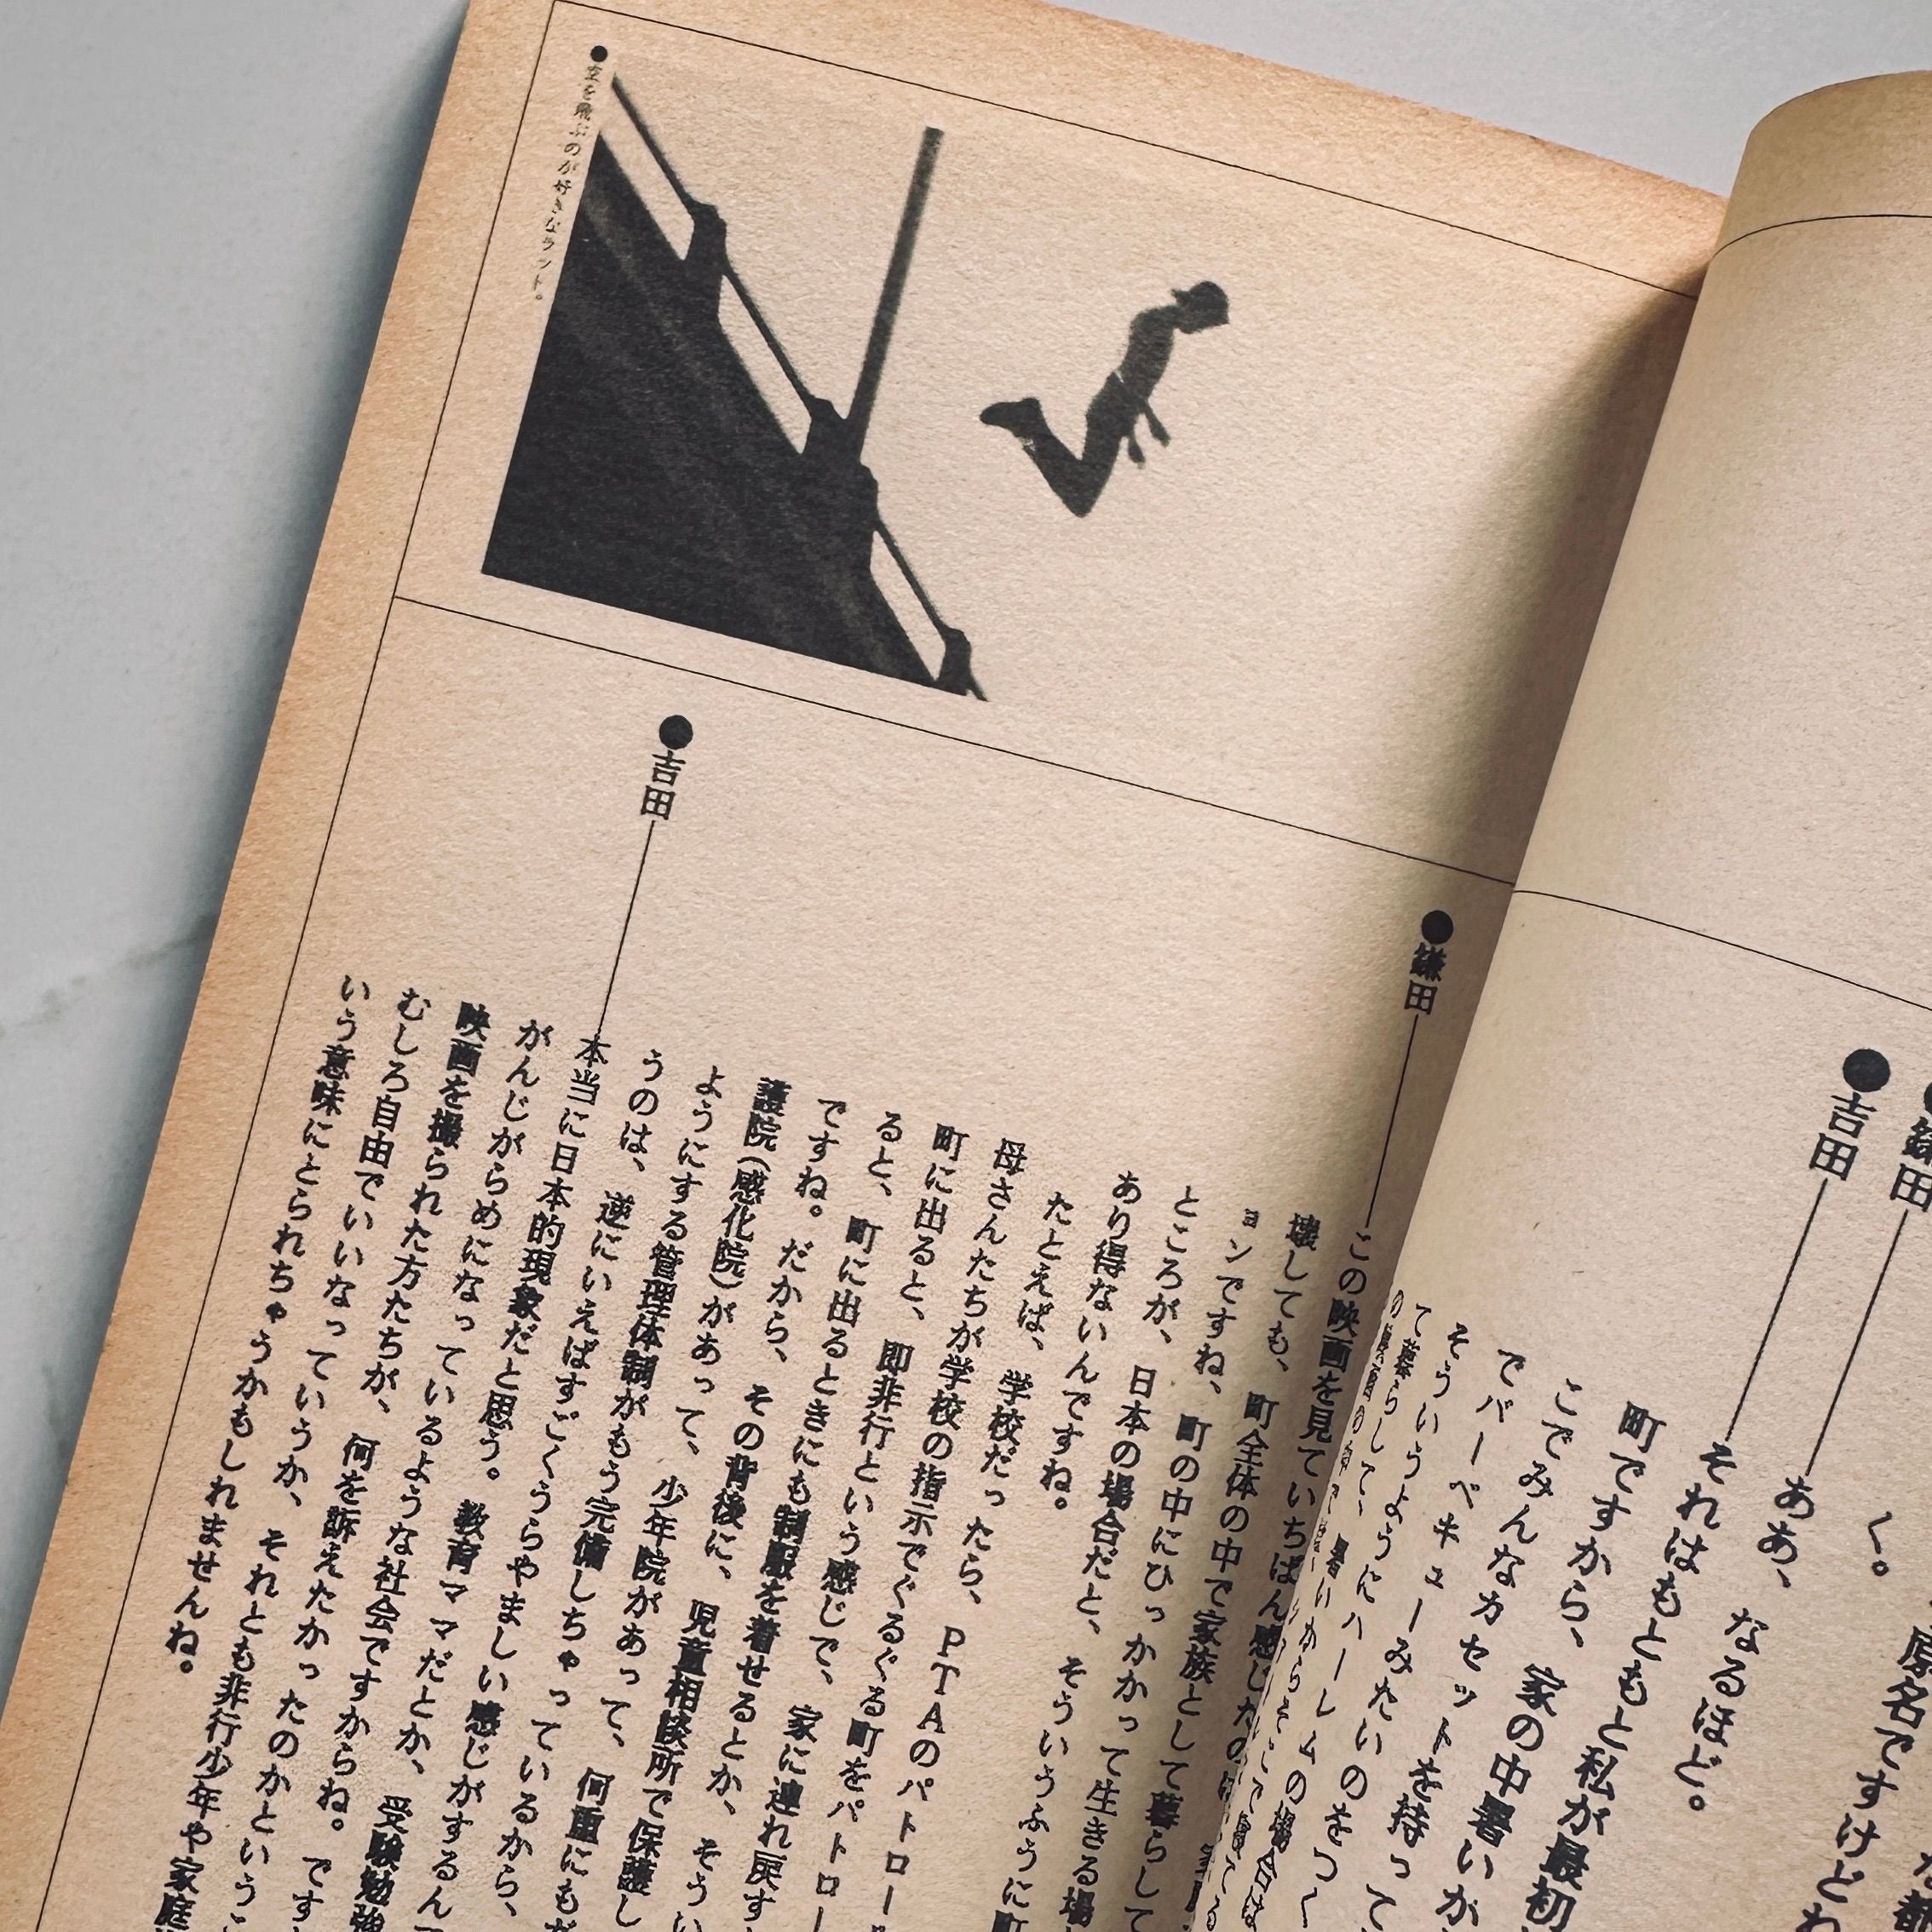 く。
●鎌田――ああ、なるほど。
●吉田――それはもともと私が最初
町ですから、家の中暑いが
こでみんなカセットを持って
でバーベキューみたいのをつく
そういうようにハーレムの場合は
て暮らして、暑いからそと
●鎌田――この映画を見ていちばん感じたの
壊しても、町全体の中で家族として暮らして
ョンですね、町の中にひっかかって生きる場
ところが、日本の場合だと、そういうふうに町
あり得ないんですね。
たとえば、学校だったら、PTAのパトロー
母さんたちが学校の指示でぐるぐる町をパトロー
町に出ると、即非行という感じで、家に連れ戻す
ると、町に出るときにも制服を着せるとか、そうい
ですね。だから、その背後に、児童相談所で保護し
護院(感化院)があって、少年院があって、何重にも
ようにする管理体制がもう完備しちゃっているから、
うのは、逆にいえばすごくうらやましい感じがするん
●吉田――本当に日本的現象だと思う。教育ママだとか、受験勉強
がんじがらめになっているような社会ですからね。です
映画を撮られた方たちが、何を訴えたかったのかという
むしろ自由でいいなっていうか、それとも非行少年や家庭
いう意味にとられちゃうかもしれませんね。
●空を飛ぶのが好きなラット。